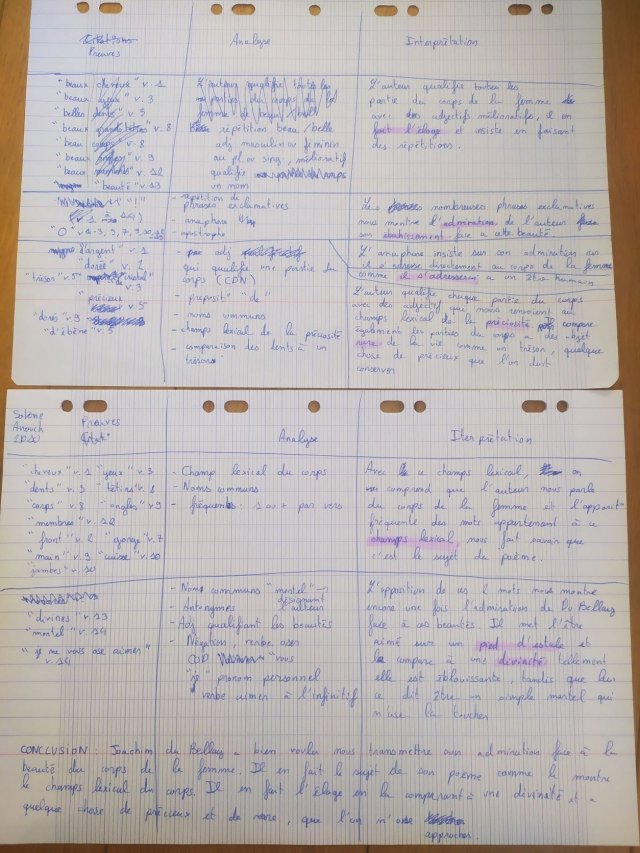 Preuves
Analyse
Interprétation
"beaux cheveux" v. 1
"beaux yeux" v. 3
"belles dents" v. 5
v. 8
"beau corps" v. 8
v. 9
v. 12
beauté" v. 13
L'auteur qualifie toutes les
parties du corps de la
femme de beau / belle
répétition beau / belle
adj masculin ou féminin
au pl ou sing, mélioratif
qualifie
un nom
L'auteur qualifie toutes les
partie du corps de la femme
avec des adjectifs mélioratifs, il en
fait l'éloge et insiste en faisant
des répétitions.
"!"
(v. 1 à 14)
"O" v. 1-3, 5, 7, 9, 10,
- répétition de
phrases exclamatives
- anaphore
- apostrophe
Les nombreuses phrases exclamatives
nous montre l'admiration de l'auteur
son ébahissement face a cette beauté.
L'anaphore insiste sur son admiration car
il s'adresse directement au corps de la femme
comme il s'adresserai a un être humain
d'argent" v. 1
"dorée" v. 2
"trésor" v. 5 cristal"
v. 3
"précieux
v. 5
"dorés" v. 9
"d'ébène" v. 5
- adj
qui qualifie une partie du
corps (CDN)
- preposit° "de"
- noms communs
- champs lexical de la préciosité
- comparaison des dents à un
trésor
L'auteur qualifie chaque partie du corps
avec des adjectif qui nous renvoient au
champs lexical de la préciosité. Il compare
également les parties du corps a des objet
rare de la vie comme un trésor, quelque
chose de précieux que l'on doit
conserver
Solène
Anouch
2D20
Preuves
Citat°
Analyse
Iterprétation
"cheveux" v. 1 "yeux" v. 3
"dents" v. 5 "tétins" v. 8
"corps" v. 8 "ongles" v 9
"membres" v. 12
"front" v. 2 "gorge" v. 7
"main" v. 9 "cuisse" v. 10
"jambes" v. 10
- Champ lexical du corps
- Noms communs
- fréquents : 1 ou + par vers
Avec ce champs lexical, on
comprend que l'auteur nous parle
du corps de la femme et l'apparit°
fréquente des mots appartenant à ce
champs lexical, nous fait savoir que
c'est le sujet du poème.
"divines" v. 13
"mortel" v. 14
"je ne vous ose aimer"
v. 14
- Noms communs "mortel"
désignant
- Antonymes l'auteur
- Adj qualifiant les beautés
- Négation, verbe oser
COD "vous"
"je" pronom personnel
verbe aimer à l'infinitif
L'opposition de ces 2 mots nous montre
encore une fois l'admiration de Du Bellay
face à ces beautés. Il met l'être
aimé sur un pied d'estale et
le compare à une divinité tellement
elle est éblouissante, tandis que lui
ce dit être un simple mortel qui
n'ose la toucher
CONCLUSION : Joachim du Bellay a bien voulu nous transmettre son admiration face à la
beauté du corps de la femme. Il en fait le sujet de son poème comme le montre
le champs lexical du corps. Il en fait l'éloge en la comparant à une divinité et a
quelque chose de précieux et de rare, que l'on n'ose
approcher.